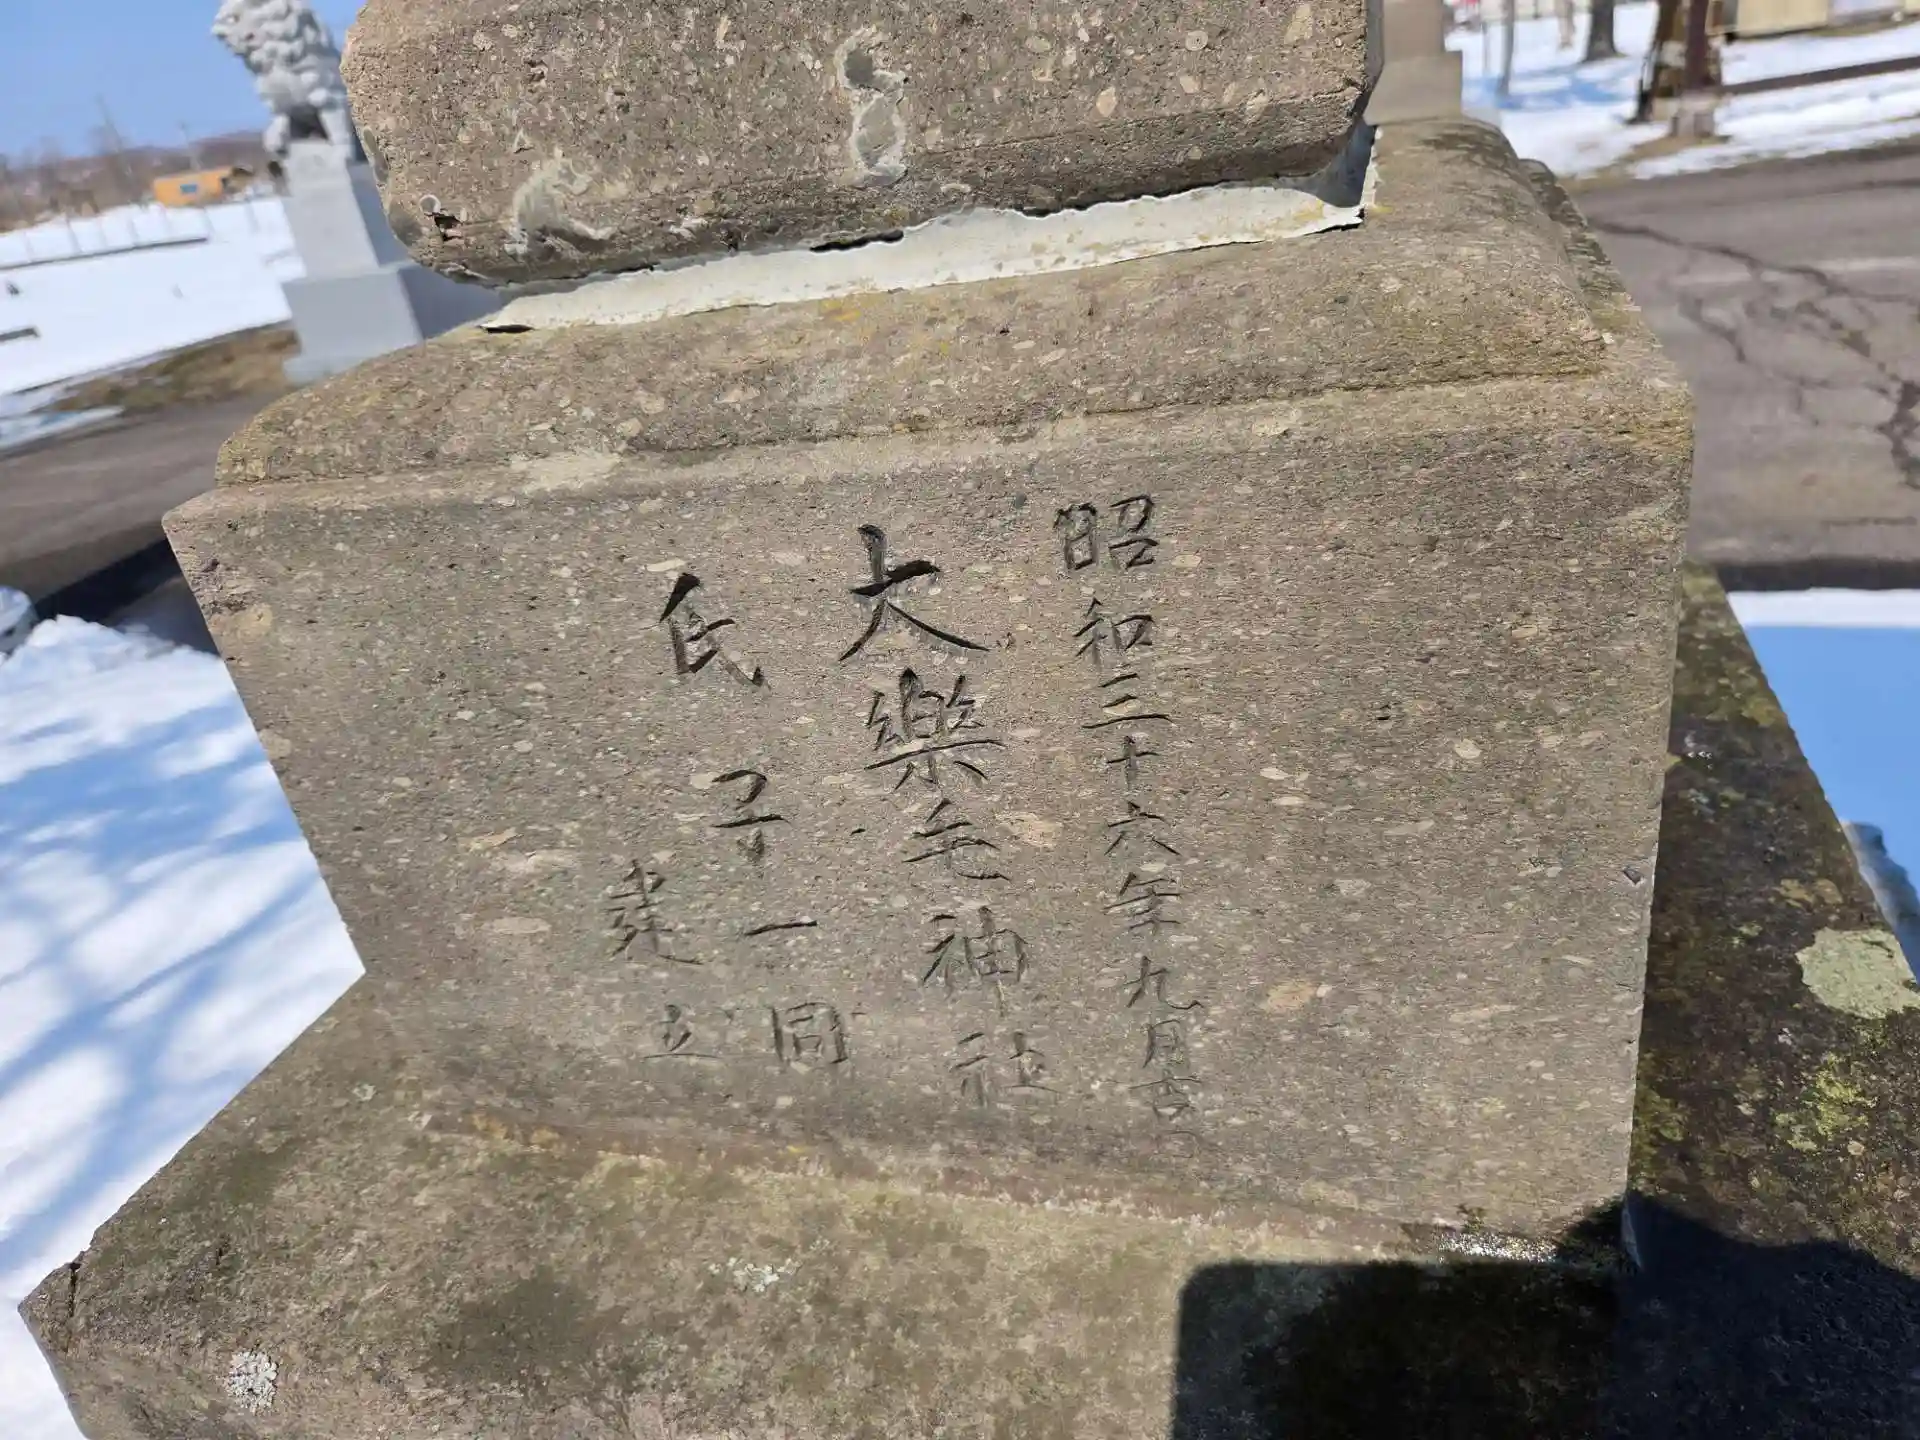 昭和三十六年九月吉
大樂毛神社
氏子一同
建立